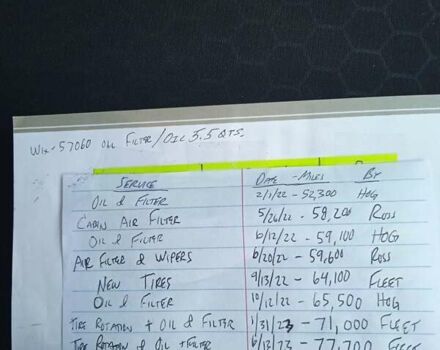 WIX-57060 OIL FILTER/OIL 5.5 QTS.
SERVICE DATE - MILES BY
OIL & FILTER 2/1/22 - 52,300 HOG
CABIN AIR FILTER 5/26/22 - 58,200 ROSS
OIL & FILTER 6/12/22 - 59,100 HOG
AIR FILTER & WIPERS 6/20/22 - 59,600 ROSS
NEW TIRES 9/13/22 - 64,100 FLEET
OIL & FILTER 10/12/22 - 65,500 HOG
TIRE ROTATION + OIL & FILTER 1/31/23 - 71,000 FLEET
TIRE ROTATION & OIL + FILTER 6/13/22 - 77,700 FLEET